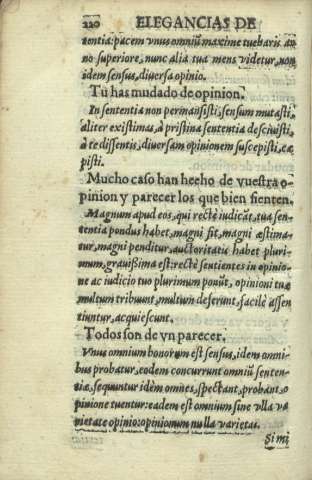 220 ELEGANCIAS DE
tentia: pacem vnus omniũ maxime tuebaris an
no superiore, nunc alia tua mens videtur, non
idem sensus, diuersa opinio.
Tu has mudado de opinion.
In sententia non permansisti, sensum mutasti,
aliter existimas, à pristina sententia desciuisti,
à te dissentis, diuersam opinionem suscepisti, cæ
pisti.
Mucho caso han hecho de vuestra o-
pinion y parecer los que bien sienten.
Magnum apud eos, qui rectè iudicãt, tua sen-
tentia pondus habet, magni fit, magni æstima-
tur, magni penditur, auctoritatẽ habet pluri-
mum, grauissima est: rectè sentientes in opinio-
ne ac iudicio tuo plurimum ponũt, opinioni tuæ
multum tribuunt, multum deferunt, facilè assen
tiuntur, acquiescunt.
Todos son de vn parecer.
Vnus omnium bonorum est sensus, idem omni-
bus probatur, eodem concurrunt omniũ senten-
tiæ, sequuntur idem omnes, spectant, probant, o-
pinione tuentur: eadem est omnium sine vlla va
rietate opinio: opinionum nulla varietas.
Simi